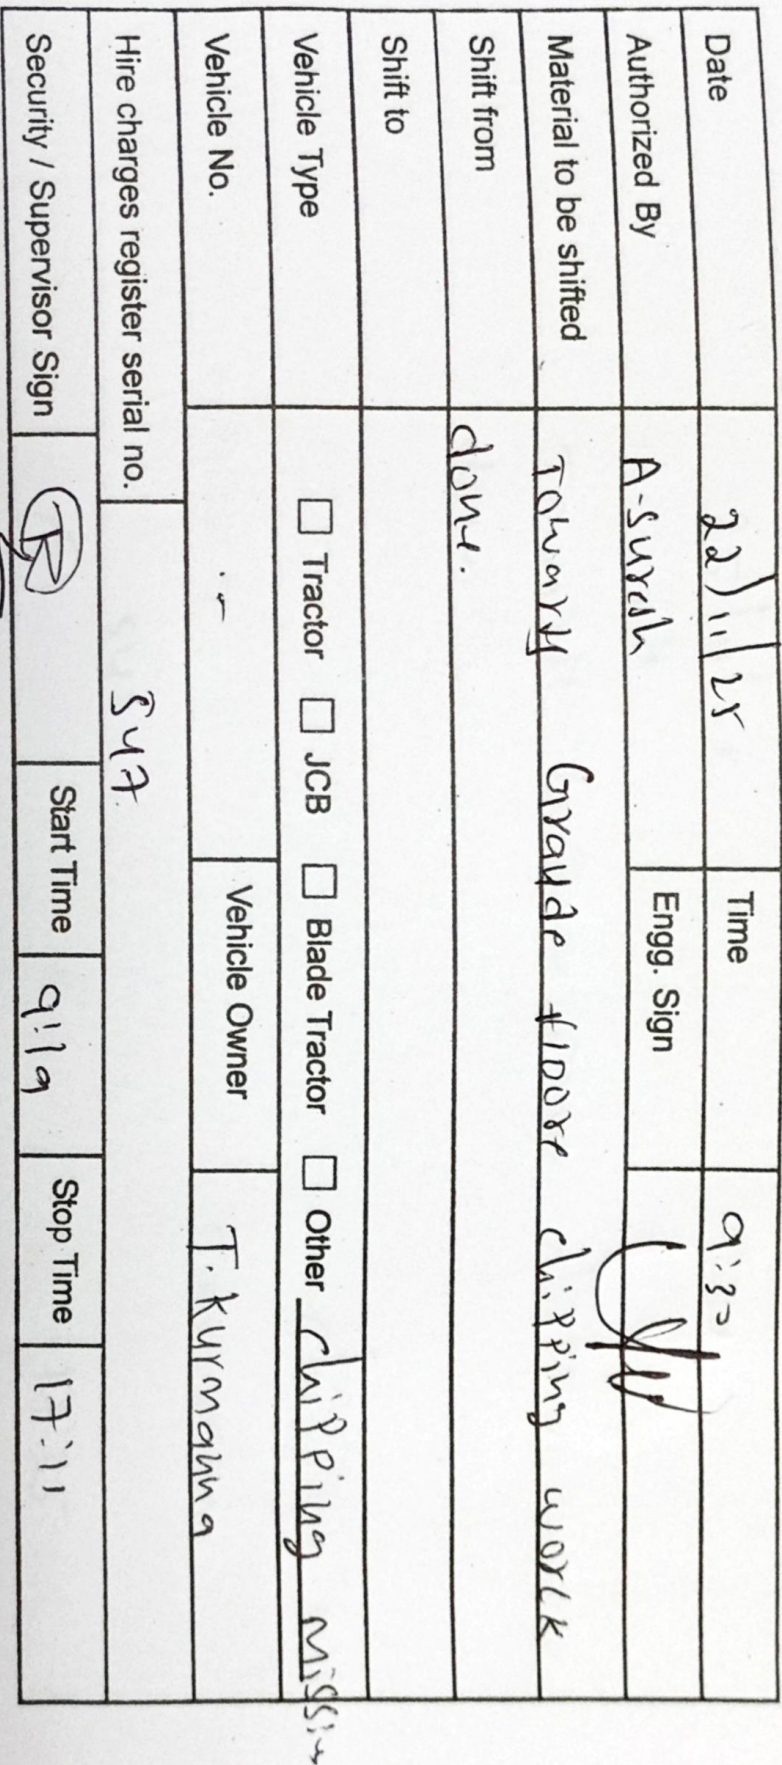 Date 22/11/25 Time 9:30
Authorized By A-suresh Engg. Sign
Material to be shifted Towards Graude floore chipping worck
Shift from done.
Shift to
Vehicle Type ☐ Tractor ☐ JCB ☐ Blade Tractor ☐ Other chipping missin
Vehicle No. Vehicle Owner T. Kurmanna
Hire charges register serial no. 547
Security / Supervisor Sign Start Time 9:19 Stop Time 17:11